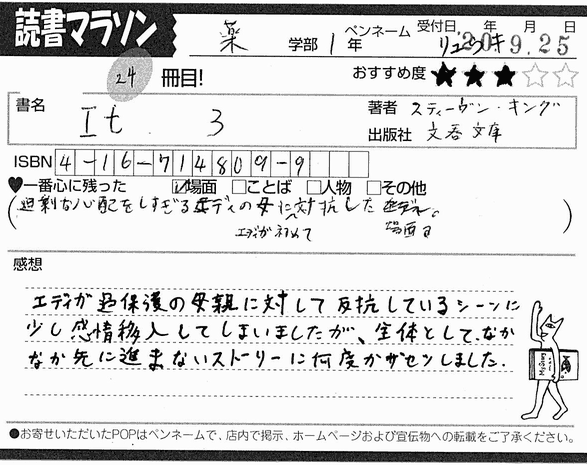 読書マラソン
薬 学部 1 年 ペンネーム リュウキ 受付日 年 月 日
'20 9.25
24 冊目! おすすめ度 ★★★☆☆
書名 It 3
著者 スティーヴン・キング
出版社 文春文庫
ISBN 4-16-714809-9
♥一番心に残った ☑場面 □ことば □人物 □その他
過剰な心配をしすぎる エディの母に対抗した 場面。
エディが初めて
感想
エディが過保護の母親に対して反抗しているシーンに
少し感情移入してしまいましたが、全体として、なか
なか先に進まないストーリーに何度かザセツしました.
●お寄せいただいたPOPはペンネームで、店内で掲示、ホームページおよび宣伝物への転載をご了承ください。